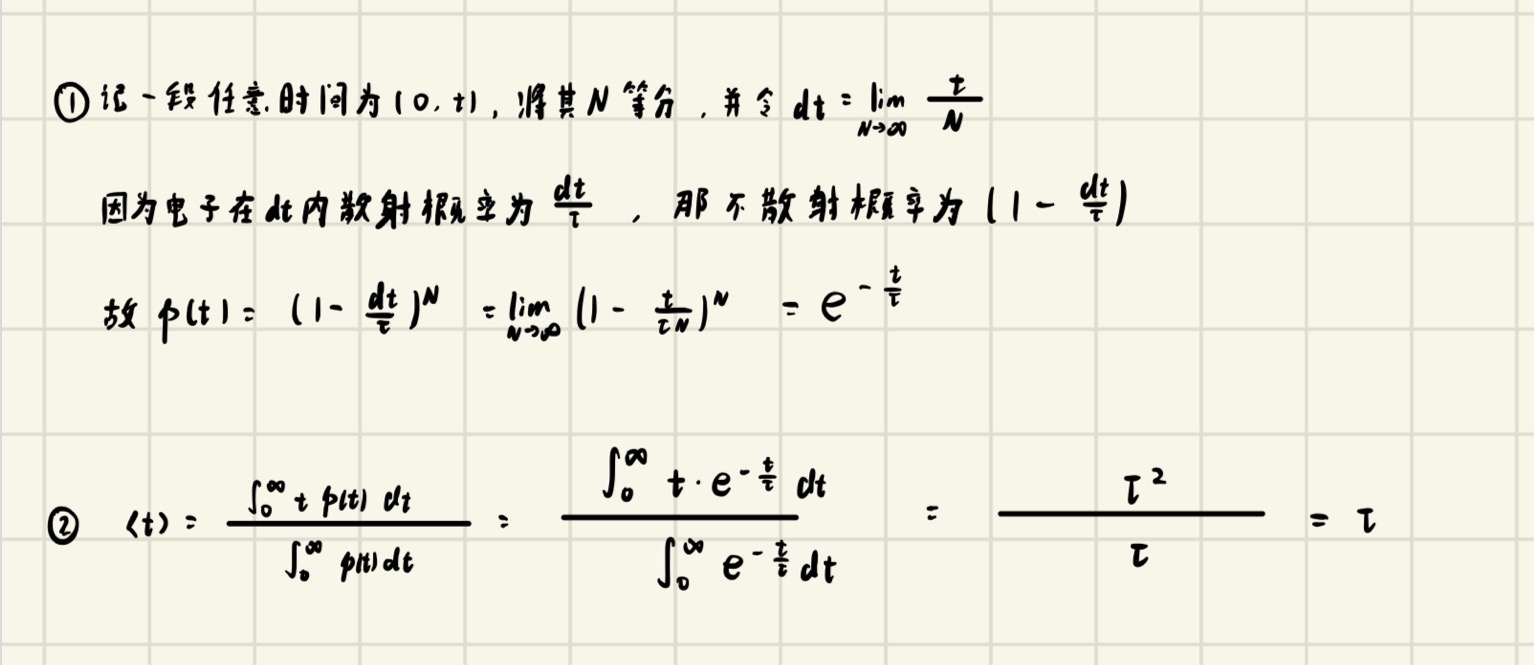 ① 记一段任意时间为(0,t),将其N等分,并令 dt = lim_{N→∞} t/N
因为电子在dt内散射概率为 dt/τ , 那不散射概率为 (1 - dt/τ)
故 p(t) = (1 - dt/τ)^N = lim_{N→∞} (1 - t/(τN))^N = e^{-t/τ}
② ⟨t⟩ = ∫_0^∞ t p(t) dt / ∫_0^∞ p(t) dt = ∫_0^∞ t · e^{-t/τ} dt / ∫_0^∞ e^{-t/τ} dt = τ² / τ = τ